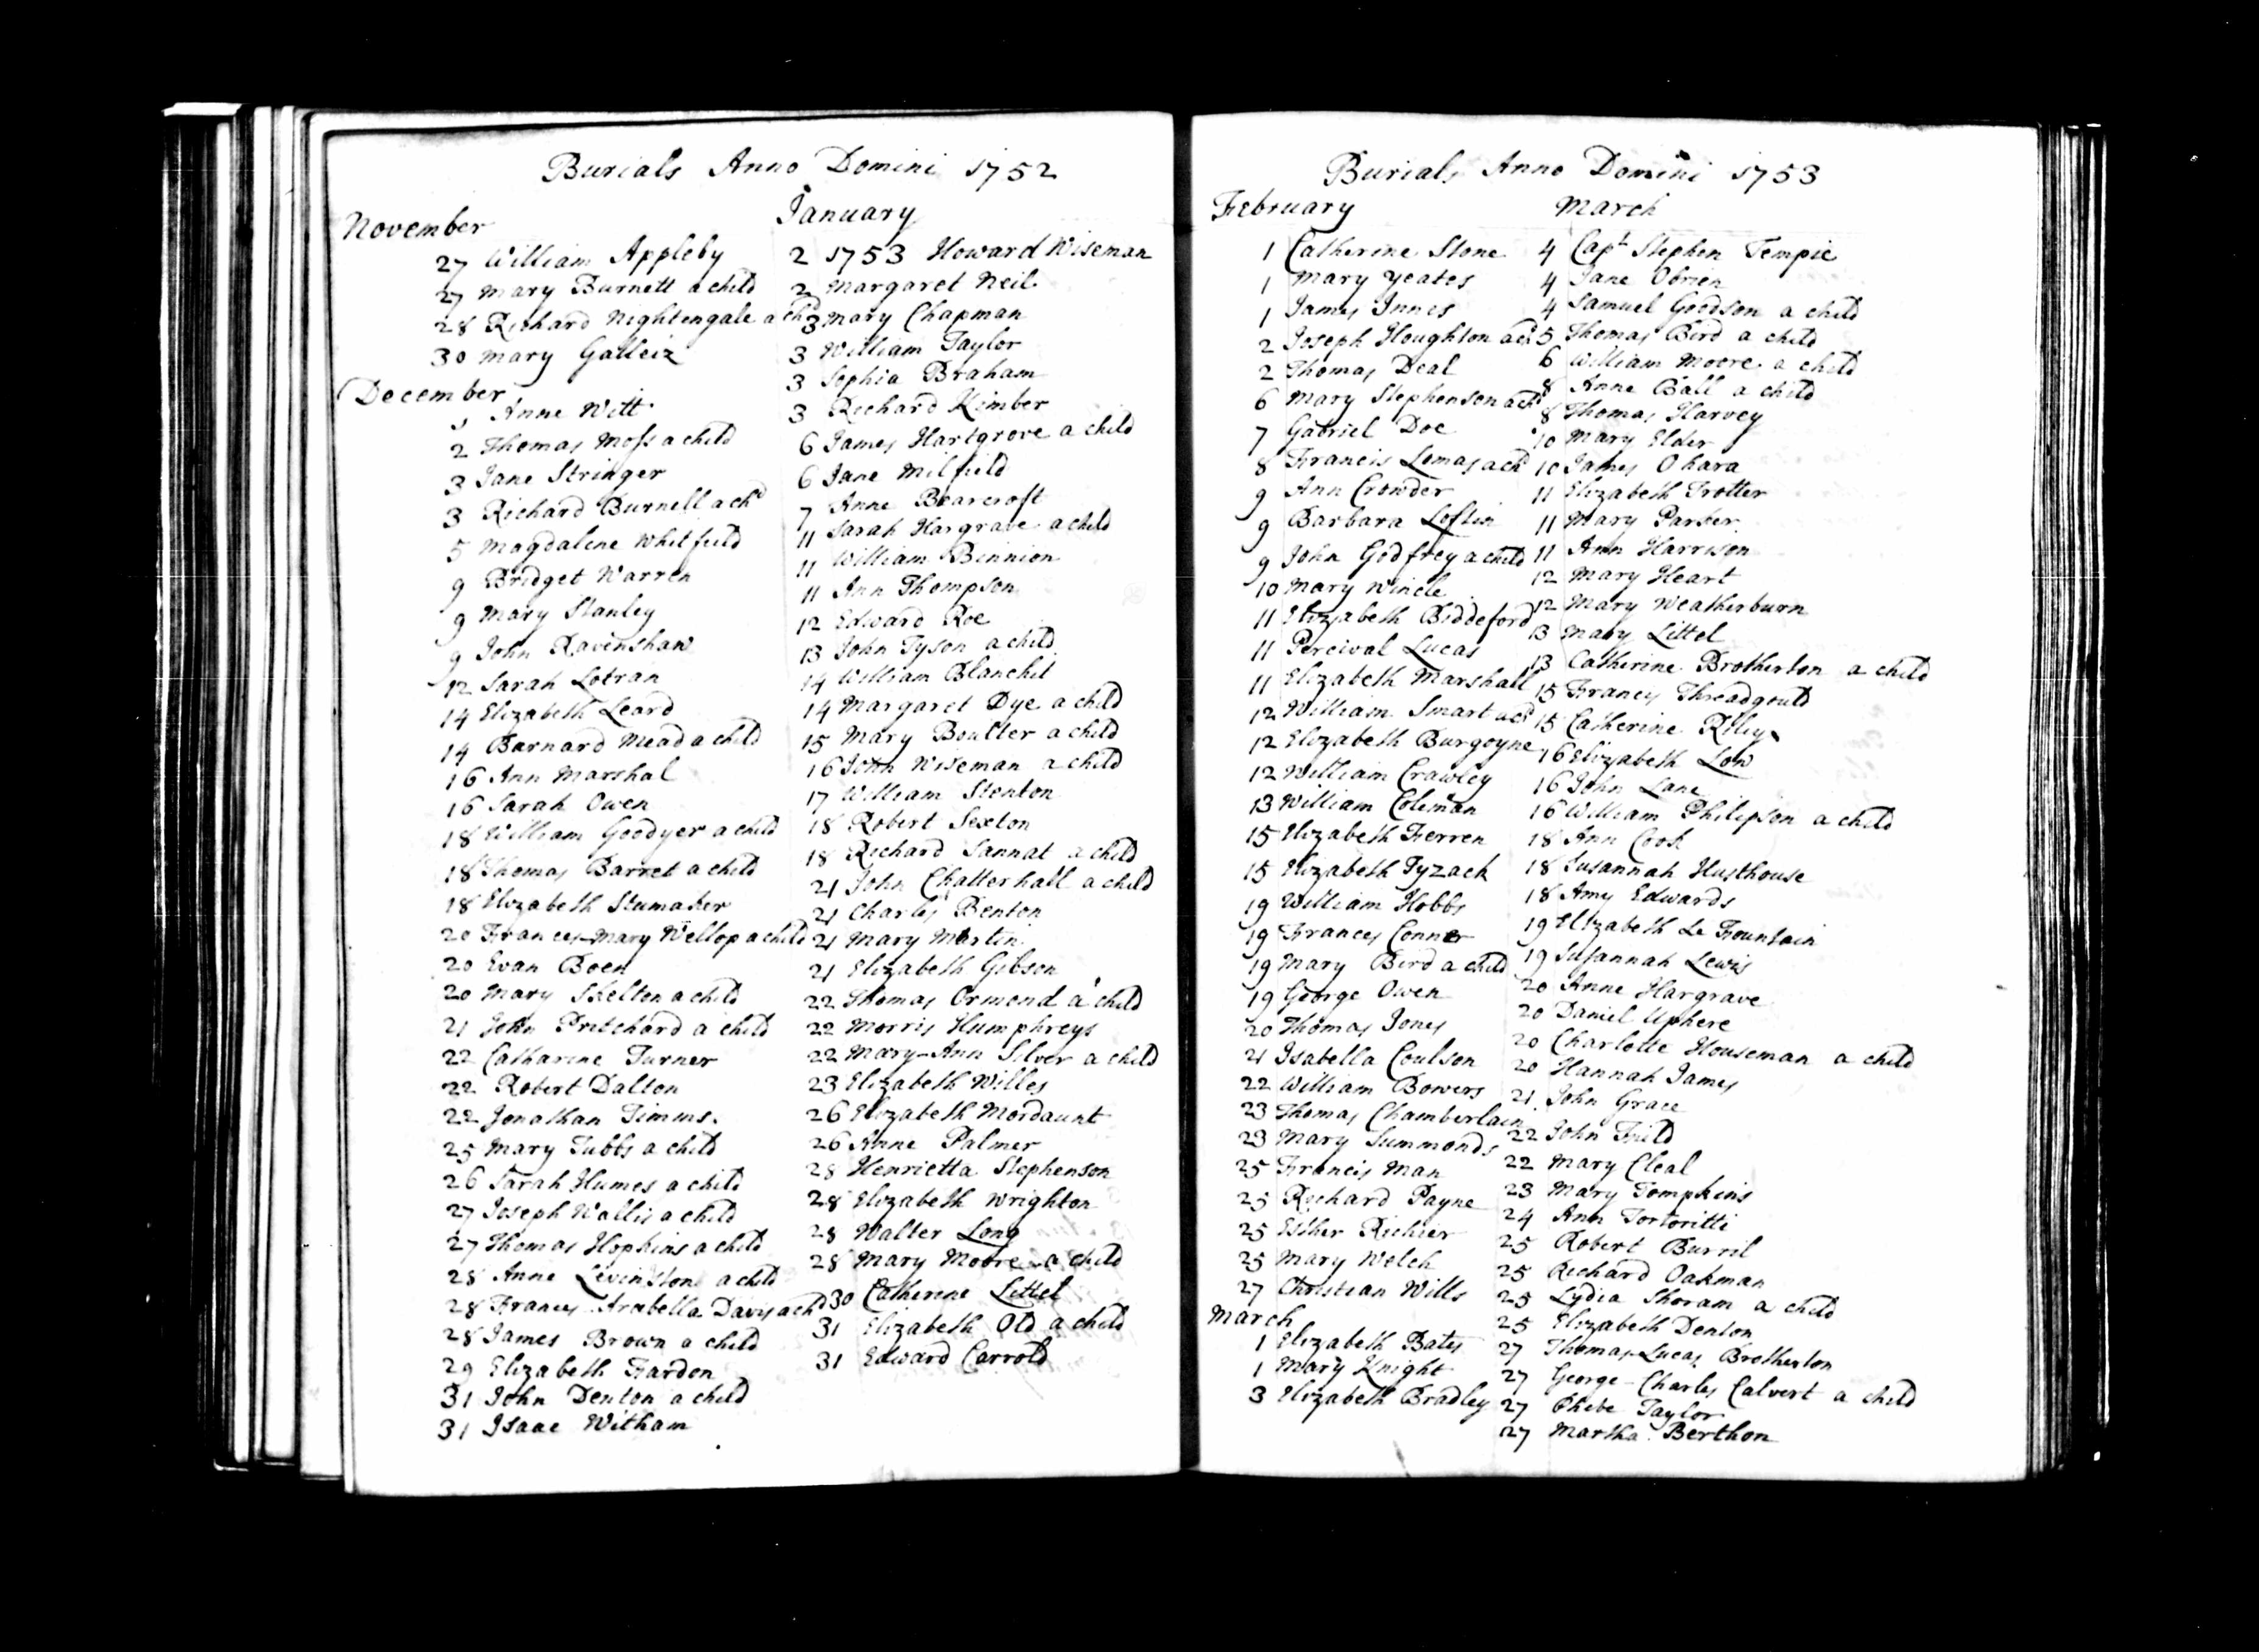 Burials Anno Domini 1752
November
27 William Appleby
27 Mary Burnett a child
28 Richard Nightengale a chd
30 Mary Galleiz
December
1 Anne Witt
2 Thomas Moss a child
3 Jane Stringer
3 Richard Burnell a chd
5 Magdalene Whitfield
9 Bridget Warren
9 Mary Stanley
9 John Ravenshaw
12 Sarah Lotran
14 Elizabeth Leard
14 Barnard Mead a child
16 Ann Marshal
16 Sarah Owen
18 William Goodyer a child
18 Thomas Barret a child
18 Elizabeth Stumaker
20 Frances-Mary Wellop a child
20 Evan Boen
20 Mary Skelton a child
21 John Pritchard a child
22 Catharine Turner
22 Robert Dalton
22 Jonathan Timms.
25 Mary Tubbs a child
26 Sarah Humes a child
27 Joseph Wallis a child
27 Thomas Hopkins a child
28 Anne Levinston a child
28 Frances Arabella Davis a chd
28 James Brown a child
29 Elizabeth Fardon
31 John Denton a child
31 Isaac Witham
January
2 1753 Howard Wiseman
2 Margaret Neil
3 Mary Chapman
3 William Taylor
3 Sophia Braham
3 Richard Kimber
6 James Hartgrove a child
6 Jane Milfield
7 Anne Bearcroft
11 Sarah Hargrave a child
11 William Binnion
11 Ann Thompson
12 Edward Roe
13 John Tyson a child
14 William Blanchit
14 Margaret Dye a child
15 Mary Boulter a child
16 John Wiseman a child
17 William Stenton
18 Robert Sexton
18 Richard Sannat a child
21 John Chatterhall a child
21 Charles Benton
21 Mary Martin
21 Elizabeth Gibson
22 Thomas Ormond a child
22 Morris Humphreys
22 Mary-Ann Silver a child
23 Elizabeth Willes
26 Elizabeth Mordaunt
26 Anne Palmer
28 Henrietta Stephenson
28 Elizabeth Wrighton
28 Walter Long
28 Mary Moore a child
30 Catherine Littel
31 Elizabeth Old a child
31 Edward Carrold
Burials Anno Domini 1753
February
1 Catherine Stone
1 Mary Yeates
1 James Innes
2 Joseph Houghton a chd
2 Thomas Deal
6 Mary Stephenson a chd
7 Gabriel Doe
8 Francis Lomas a chd
9 Ann Crowder
9 Barbara Loftin
9 John Godfrey a child
10 Mary Wincle
11 Elizabeth Biddeford
11 Percival Lucas
11 Elizabeth Marshall
12 William Smart a chd
12 Elizabeth Burgoyne
12 William Crawley
13 William Coleman
15 Elizabeth Ferren
15 Elizabeth Tyzack
19 William Hobbs
19 Frances Conner
19 Mary Bird a child
19 George Owen
20 Thomas Jones
21 Isabella Coulson
22 William Bowers
23 Thomas Chamberlain
23 Mary Summonds
25 Francis Man
25 Richard Payne
25 Esther Richier
25 Mary Welch
27 Christian Wills
March
1 Elizabeth Bates
1 Mary Knight
3 Elizabeth Bradley
March
4 Capt Stephen Tempie
4 Jane Obrien
4 Samuel Goodson a child
5 Thomas Bird a child
6 William Moore a child
8 Anne Ball a child
8 Thomas Harvey
10 Mary Elder
10 James Ohara
11 Elizabeth Trotter
11 Mary Parker
11 Ann Harrison
12 Mary Heart
12 Mary Weatherburn
13 Mary Littel
13 Catherine Brotherton a child
15 Frances Threadgould
15 Catherine Riley
16 Elizabeth Low
16 John Lane
16 William Philipson a child
18 Ann Cook
18 Susannah Husthouse
18 Amy Edwards
19 Elizabeth Le Fountain
19 Susannah Lewis
20 Anne Hargrave
20 Daniel Uphere
20 Charlotte Houseman a child
20 Hannah James
21 John Grace
22 John Field
22 Mary Cleal
23 Mary Tompkins
24 Ann Tortoritti
25 Robert Burril
25 Richard Oakman
25 Lydia Shoram a child
25 Elizabeth Denton
27 Thomas-Lucas Brotherton
27 George-Charles Calvert a child
27 Phebe Taylor
27 Martha Berthon